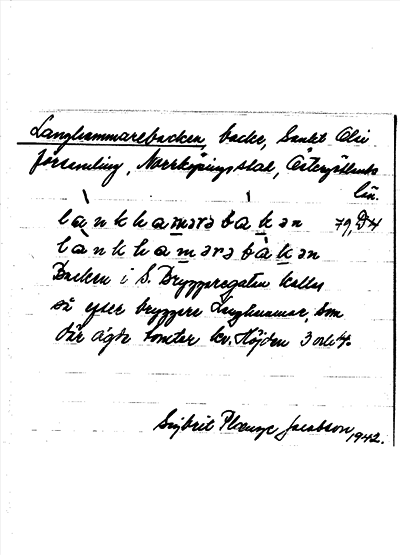 Langhammarebacken, backe, Sankt Olai
församling, Norrköpings stad, Östergötlands
län.
lànkhamərəbàkən 79, D4
lànkhamərəbàkən
Backen i S. Bryggaregatan kallas
så efter bryggare Langhammar, som
där ägde tomter kv. Höjden 3 och 4.
Sigbrit Plænge Jacobson, 1942.